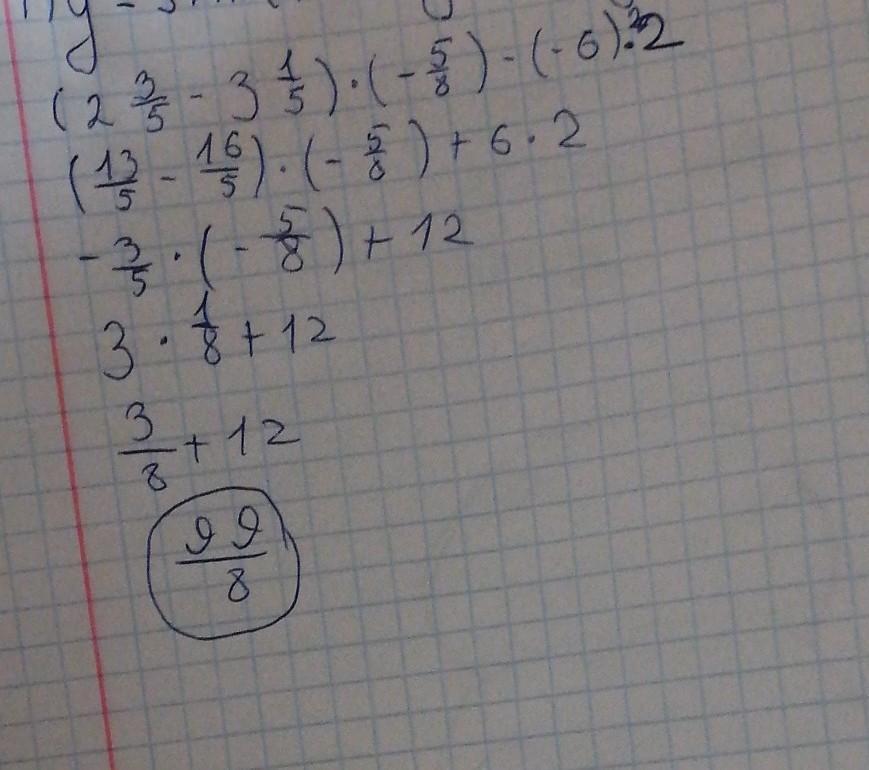 (2 3/5 - 3 1/5) · (-5/8) - (-6) · 2
(13/5 - 16/5) · (-5/8) + 6 · 2
-3/5 · (-5/8) + 12
3 · 1/8 + 12
3/8 + 12
99/8